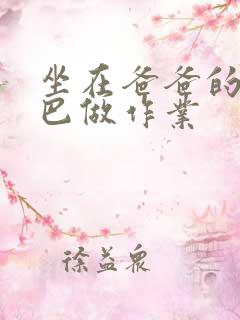 坐在爸爸的
巴做作业
徐益众